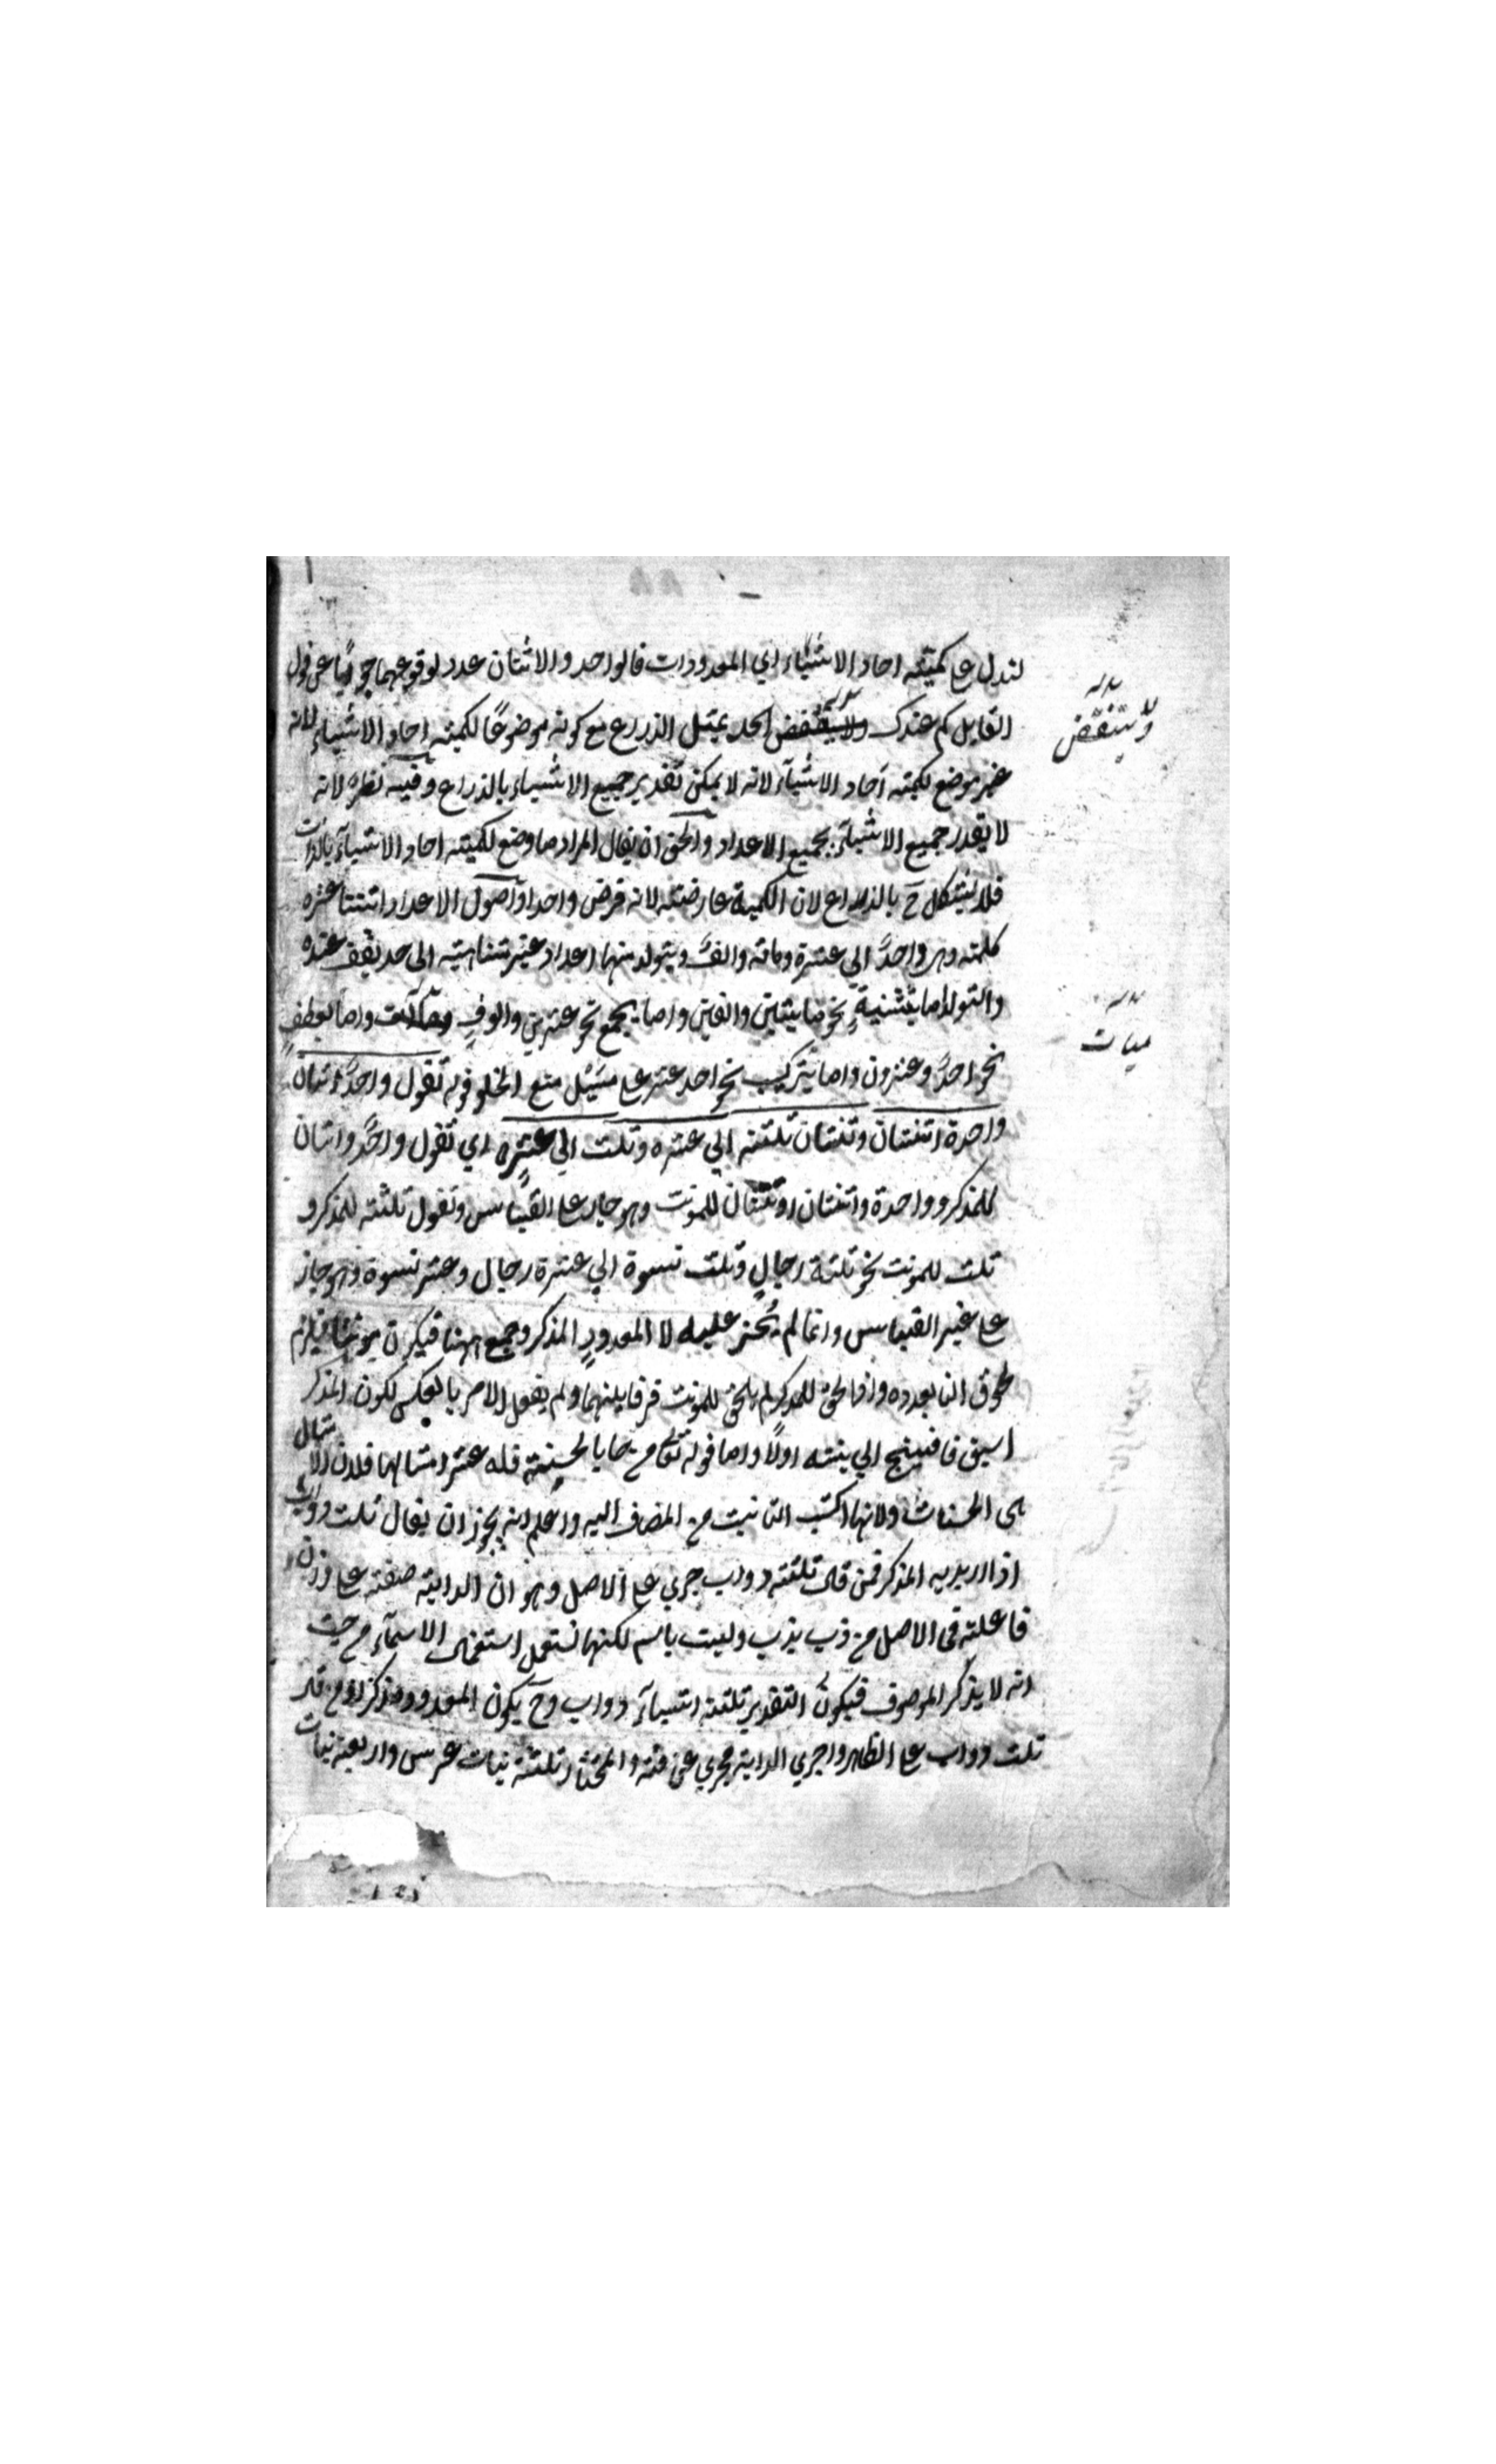 لتدل على كميّته احاد الاشياء اي المعدودات فالواحد والاثنان عدد لوقوعهما جوابًا عن قول
القايل كم عندك ولا ينتقض الحد بمثل الذراع مع كونه موضوعًا لكميته احاد الاشياء لانه
غير موضع لكميته احاد الاشيآء لانه لا يمكن تقدير جميع الاشياء بالذراع وفيه نظر لانه
لا يقدر جميع الاشيآء بجميع الاعداد والحق ان يقال المراد ما وضع لكميته احاد الاشيآء بالذات
فلا يشكل ح بالذراع لان الكمية عارضته لانه فرض واحدا واصول الاعداد اثنتا عشره
كلمته وهى واحدٌ الى عشرة ومائه والفٌ ويتولد منها اعداد غير متناهيته الى حد يقف عنده
والتولد اما بتثنيةٍ نحو مايتين والفين واما بجمع نحو عشرين والوفٍ واما بعطفٍ
نحو احدٌ وعشرون واما بتركيب نحو احد عشر على سبيل منع الخلو قوله تقول واحدٌ اثنان
واحدة اثنتان وثنتان ثلثته الى عشره وثلث الى عشره اي تقول واحدٌ واثنان
للمذكر وواحدة واثنتان او ثنتان للمونث وهو جار على القياس وتقول ثلثته للمذكر و
ثلث للمونث نحو ثلثة رجالٍ وثلث نسوة الى عشرة رجال وعشر نسوة وهو جار
على غير القياس وانما لم يُجر عليه لا المعدودِ المذكر وجمع ههنا فيكون مونثا فيلزم
لحوق التا بعدده واذا لحق للمذكر لم يلحق للمونث فرقا بينهما ولم يفعل الامر بالعكس لكون المذكر
اسبق فافتيج الى بيته اولًا واما قوله تعالى من جا بالحسنة فله عشر امثالها فلان الامثال
هى الحسنات ولانها اكتسب التانيث من المضاف اليه واعلم انه يجوز ان يقال ثلث دواب
اذا اريد به المذكر فمن قال ثلثته دواب جرى على الاصل وهو ان الدابته صفته على وزن
فاعلته فى الاصل من دب يدب وليست باسم لكنها تستعمل استعمال الاسمآء من حيث
انه لا يذكر الموصوف فيكون التقدير ثلثته اشيآء دواب وح يكون المعدود مذكرا ومن قال
ثلث دواب على الظاهر واجرى الدابة مجرى عرفته والمختار ثلثة بنات عرس واربعة بنات
ولا ينتقض
ميات